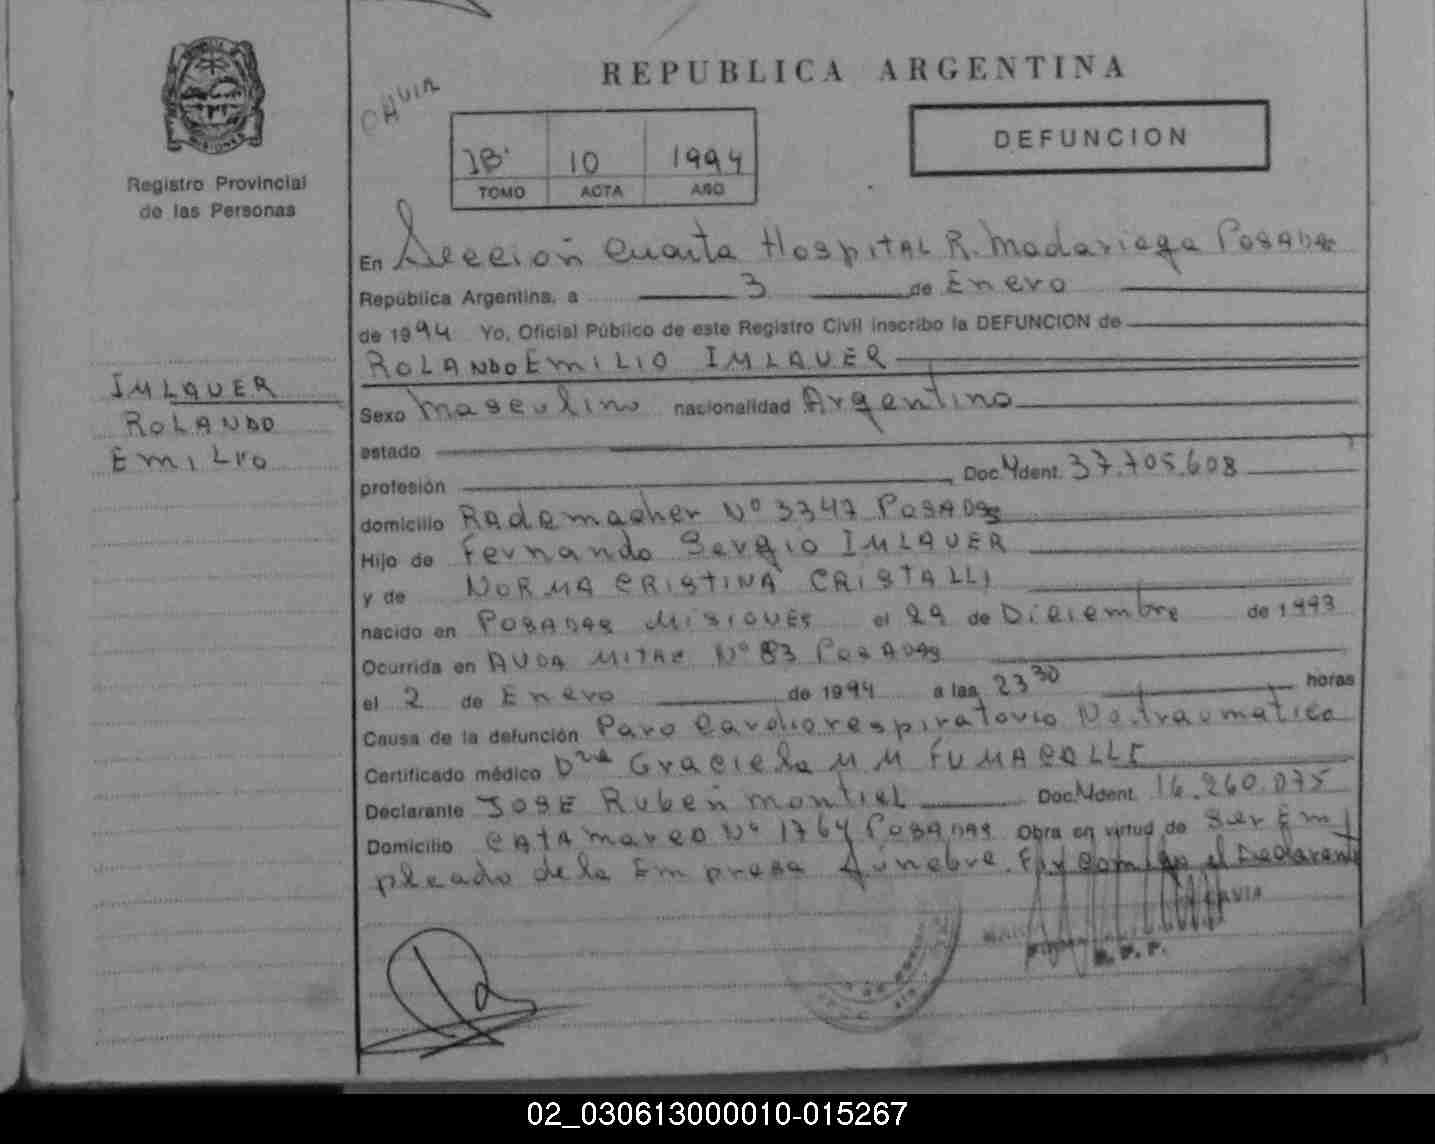 MISIONES
Registro Provincial
de las Personas
IMLAUER
ROLANDO
EMILIO
REPUBLICA ARGENTINA
DEFUNCION
1B' 10 1994
TOMO ACTA AÑO
En Sección Cuarta Hospital R. Madariaga Posadas
República Argentina, a 3 de Enero
de 1994 Yo, Oficial Público de este Registro Civil inscribo la DEFUNCION de
ROLANDO EMILIO IMLAUER
Sexo Masculino nacionalidad Argentino
estado
profesión Doc. Ydent. 37.705.608
domicilio Rademacher Nº 3347 Posadas
Hijo de Fernando Sergio IMLAUER
y de NORMA CRISTINA CRISTALLI
nacido en POSADAS MISIONES el 29 de Diciembre de 1993
Ocurrida en AVDA MITRE Nº 83 Posadas
el 2 de Enero de 1994 a las 23 30 horas
Causa de la defunción Paro Cardiorespiratorio No traumatico
Certificado médico Dra Graciela M M FUMAGALLI
Declarante JOSE Ruben Montiel Doc. Ydent. 16.260.075
Domicilio CATAMARCA Nº 1764 POSADAS Obra en virtud de Ser Em
pleado de la Empresa fúnebre. Fir Comigo el Declarante
02_030613000010-015267